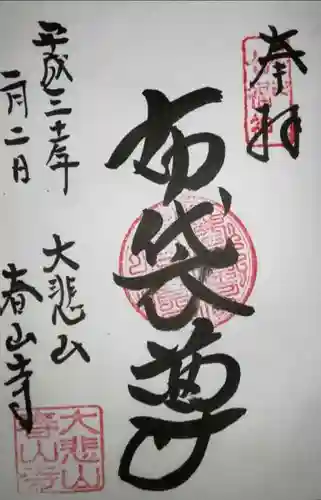 奉拝
布袋尊
平成三十年
二月二日
大悲山
春山寺
大悲山
春山寺